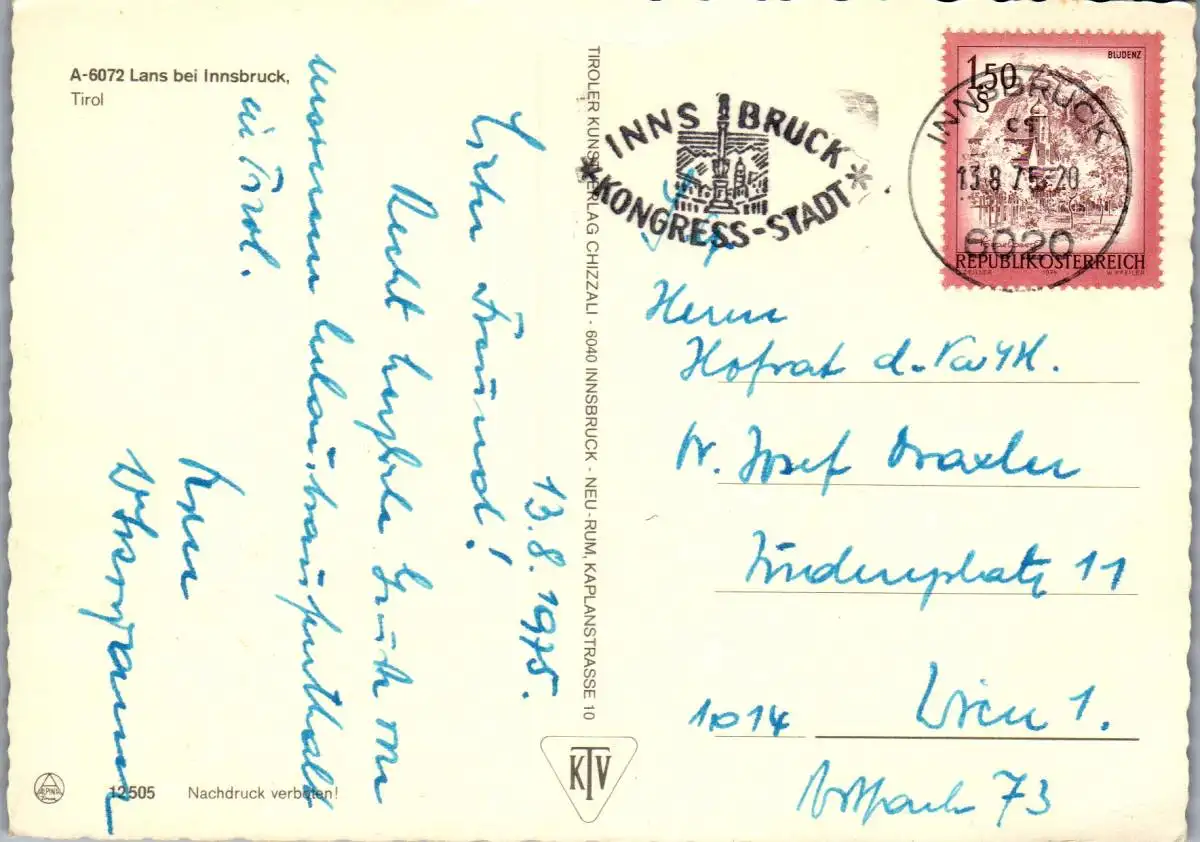 A-6072 Lans bei Innsbruck,
Tirol
13.8.1975.
Lieber Freund!
Recht herzliche Grüße von
unserem Urlaubsaufenthalt
in Tirol.
TIROLER KUNSTVERLAG CHIZZALI · 6040 INNSBRUCK - NEU-RUM, KAPLANSTRASSE 10
INNSBRUCK
KONGRESS-STADT
BLUDENZ
1.50
S
REPUBLIK ÖSTERREICH
INNSBRUCK
13.8.75-20
6020
Herrn
Hofrat d.
Dr. Josef Draxler
Judenplatz 11
1014 Wien 1.
Postfach 73
KTV
12505 Nachdruck verboten!